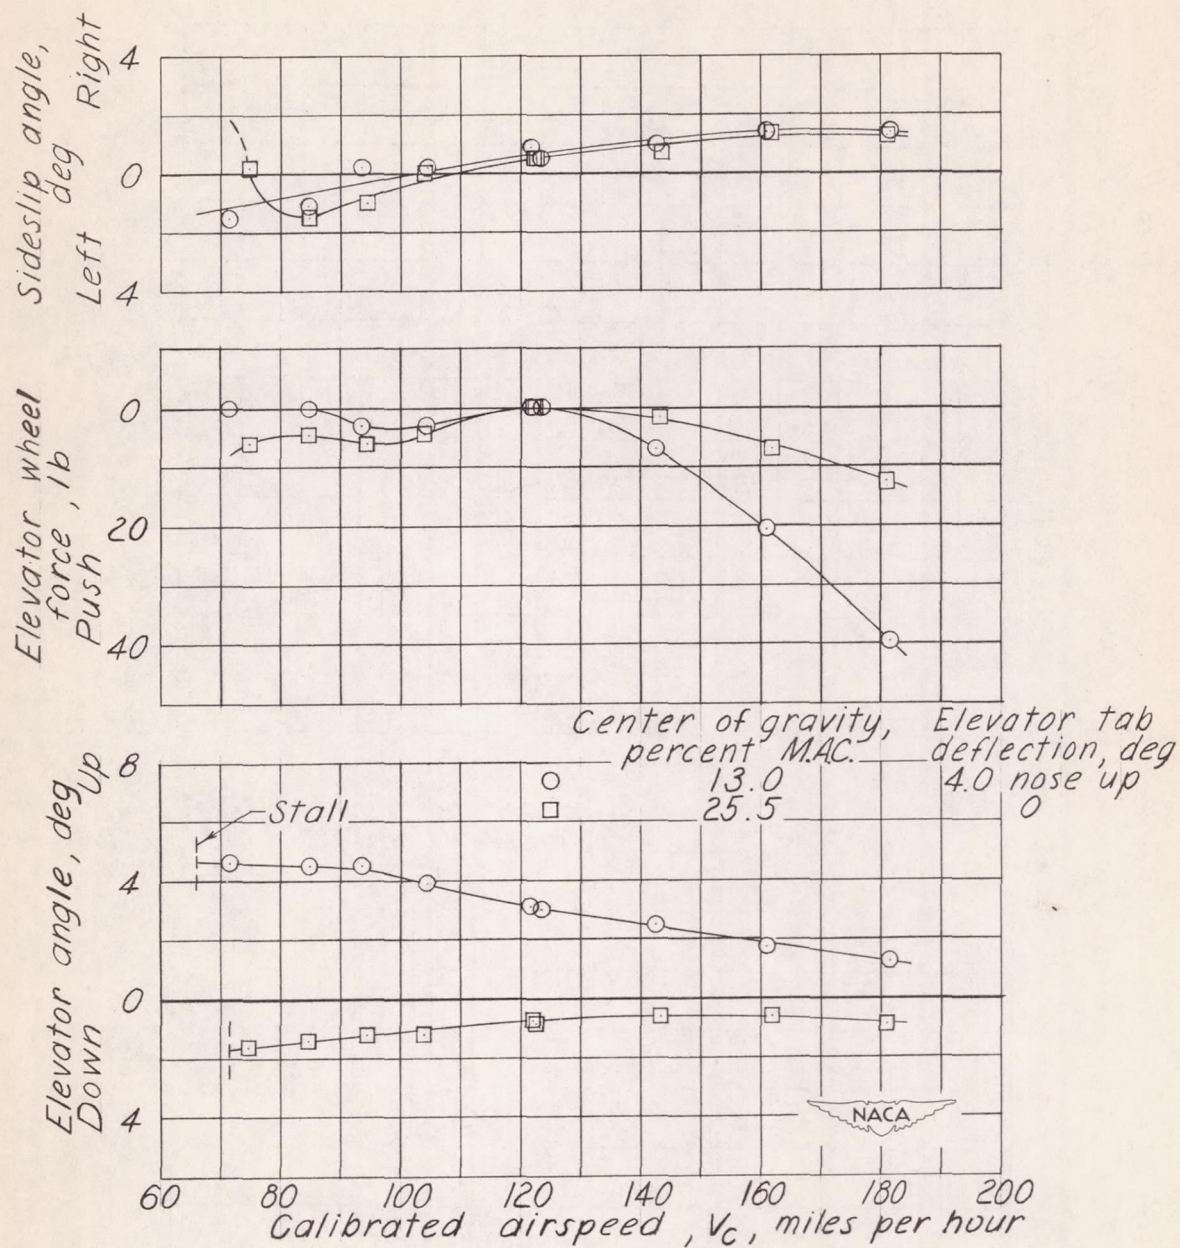 Sideslip angle,
deg
Left Right
4
0
4
Elevator wheel
force, lb
Push
0
20
40
Center of gravity, Elevator tab
percent M.A.C. deflection, deg
13.0 4.0 nose up
25.5 0
Elevator angle, deg
Down Up
8
4
0
4
Stall
NACA
60 80 100 120 140 160 180 200
Calibrated airspeed, Vc, miles per hour